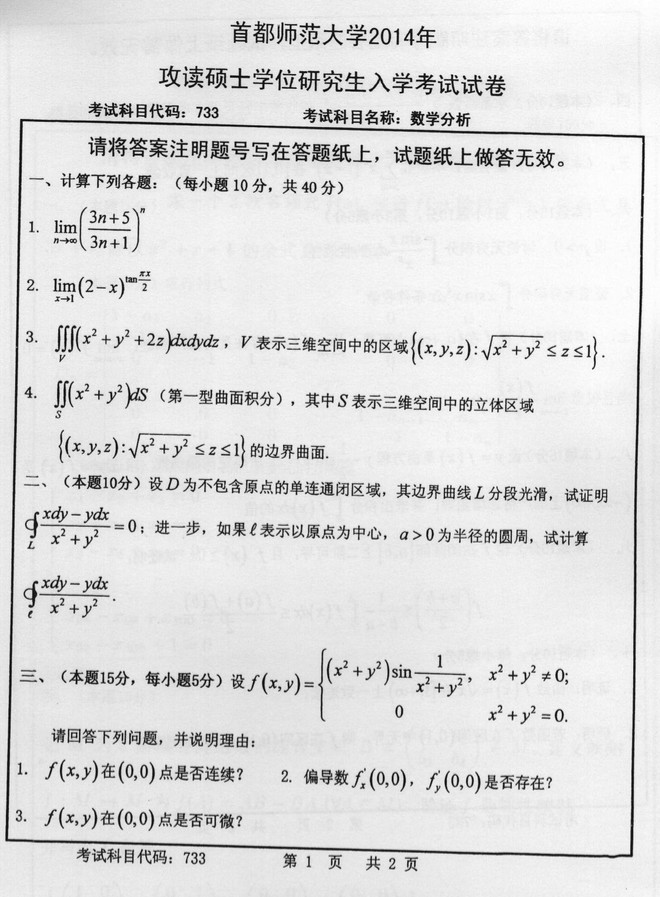 首都师范大学2014年
攻读硕士学位研究生入学考试试卷
考试科目代码：733 考试科目名称：数学分析
请将答案注明题号写在答题纸上，试题纸上做答无效。
一、计算下列各题：（每小题 10 分，共 40 分）
1. $\lim_{n\to\infty}\left(\frac{3n+5}{3n+1}\right)^n$
2. $\lim_{x\to 1}(2-x)^{\tan\frac{\pi x}{2}}$
3. $\iiint_V (x^2+y^2+2z)dxdydz$，V 表示三维空间中的区域$\{(x,y,z):\sqrt{x^2+y^2}\le z\le 1\}$.
4. $\iint_S (x^2+y^2)dS$（第一型曲面积分），其中 S 表示三维空间中的立体区域
$\{(x,y,z):\sqrt{x^2+y^2}\le z\le 1\}$的边界曲面.
二、（本题10分）设 D 为不包含原点的单连通闭区域，其边界曲线 L 分段光滑，试证明
$\oint_L \frac{xdy-ydx}{x^2+y^2}=0$；进一步，如果 ℓ 表示以原点为中心，a>0 为半径的圆周，试计算
$\oint_\ell \frac{xdy-ydx}{x^2+y^2}$.
三、（本题15分，每小题5分）设 $f(x,y)=\begin{cases}(x^2+y^2)\sin\frac{1}{x^2+y^2}, & x^2+y^2\ne 0;\\ 0 & x^2+y^2=0.\end{cases}$
请回答下列问题，并说明理由：
1. $f(x,y)$在$(0,0)$点是否连续？ 2. 偏导数$f_x'(0,0)$，$f_y'(0,0)$是否存在？
3. $f(x,y)$在$(0,0)$点是否可微？
考试科目代码：733 第 1 页 共 2 页